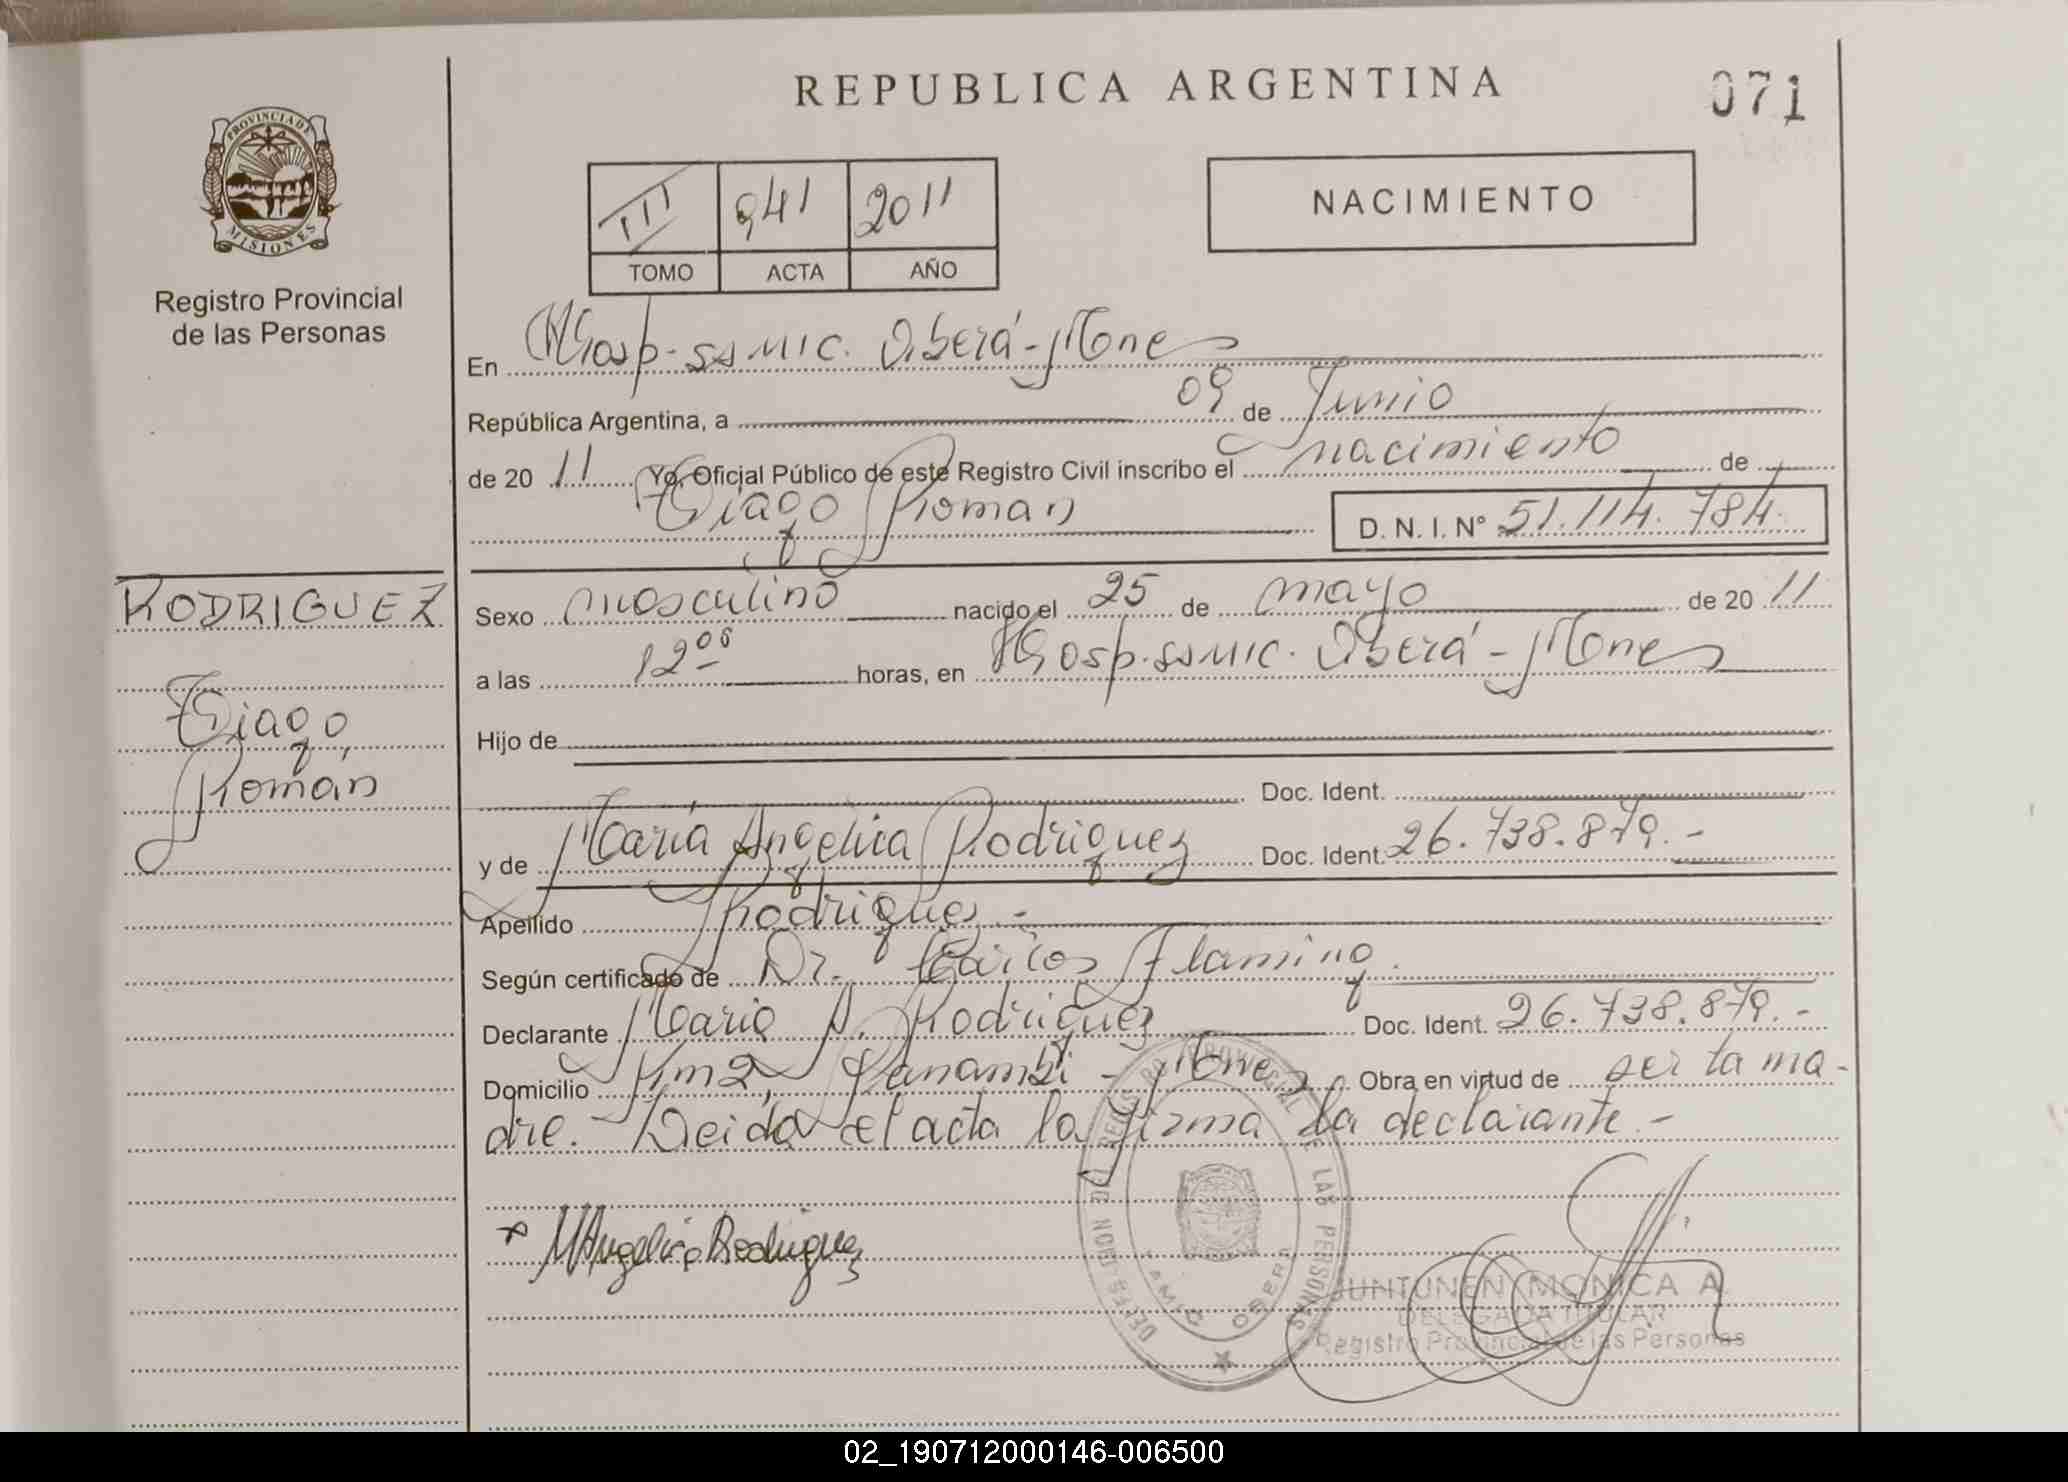 REPUBLICA ARGENTINA
071
PROVINCIA DE
MISIONES
Registro Provincial
de las Personas
III 941 2011
TOMO ACTA AÑO
NACIMIENTO
En Hosp. SAMIC. Oberá - Mnes
República Argentina, a 09 de Junio
de 20 11 Yo, Oficial Público de este Registro Civil inscribo el nacimiento de
Tiago Roman
D. N. I. Nº 51.114.784
RODRIGUEZ
Tiago
Román
Sexo masculino nacido el 25 de mayo de 20 11
a las 12 00 horas, en Hosp. SAMIC. Oberá - Mnes
Hijo de
Doc. Ident.
y de María Angélica Rodriguez Doc. Ident. 26.738.879.-
Apellido Rodriguez.-
Según certificado de Dr. Carlos Flaming.
Declarante Maria A. Rodriguez Doc. Ident. 26.738.879.-
Domicilio Km 2, Panambi - Mnes Obra en virtud de ser la ma-
dre. - Leida el acta la firma la declarante.-
x MAngelica Rodriguez
REGISTRO PROVINCIAL DE LAS PERSONAS
SAMIC OBERA
JUNTUNEN MONICA A.
DELEGADA TITULAR
Registro Provincial de las Personas
02_190712000146-006500